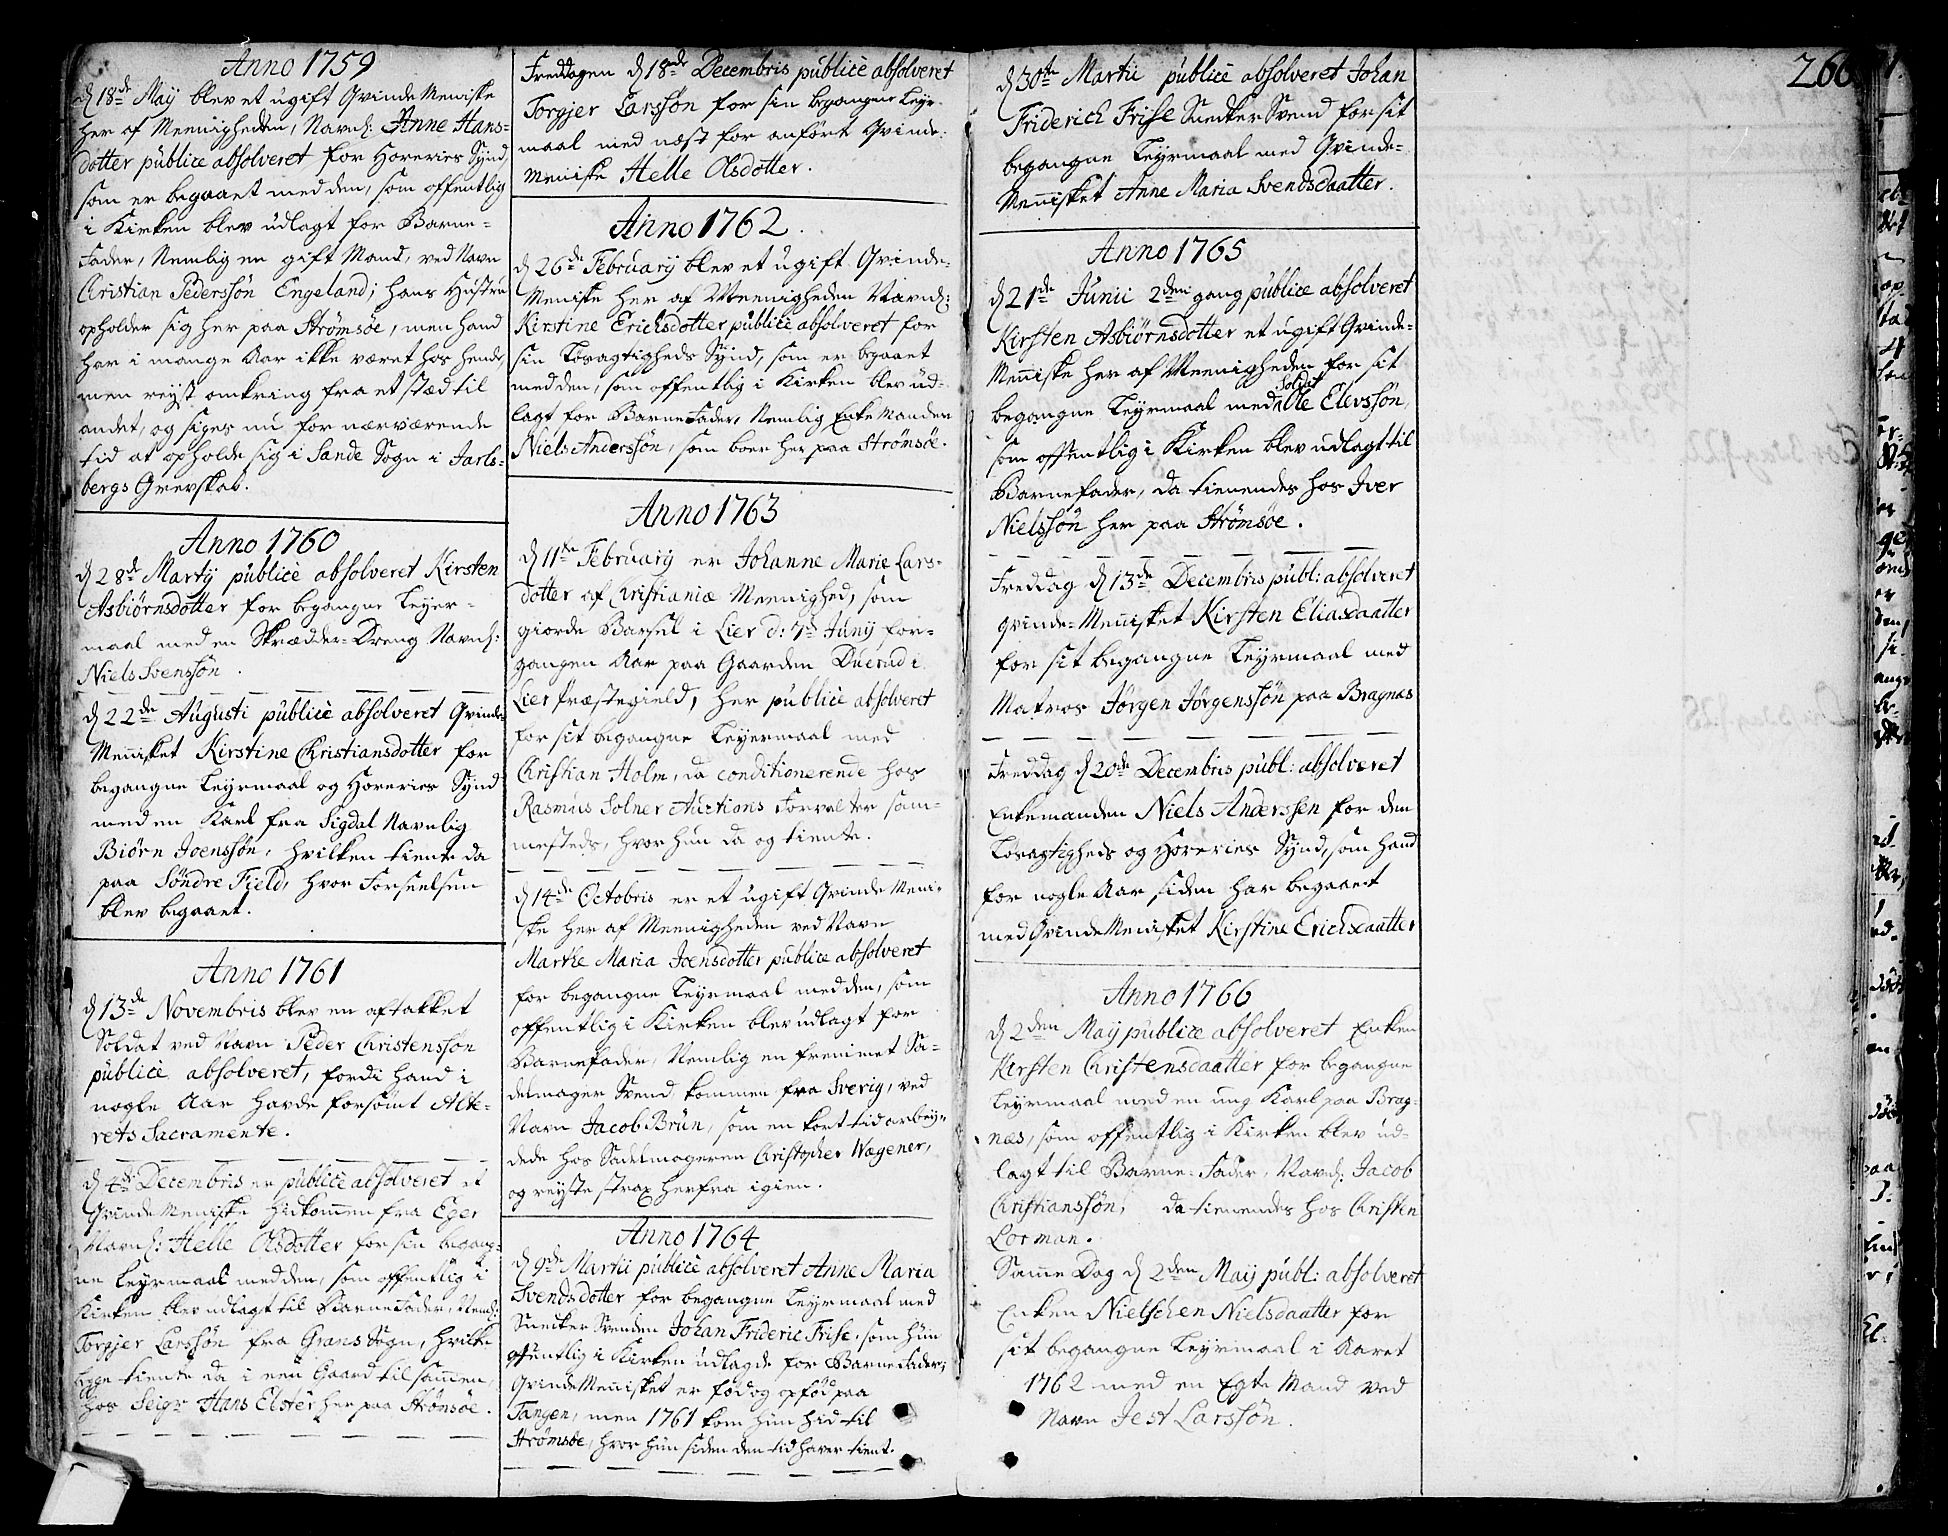 Anno 1759
d 18de Maij blev et ugift Qvinde Meniske
her af Meenigheden, Navnl: Anne Hans=
dotter publice absolveret for Horeries Synd,
som er begaaet med den, som offentlig
i Kirken blev udlagt for Barne=
Fader, Nemlig en gift Mand, ved Navn
Christian Pederssøn Engeland; hans Hustru
opholder sig her paa Strømsøe, men hand
har i mange Aar ikke været hos hende,
men reyst omkring fra et stæd til
andet, og siges nu for nærværende
tid at opholde sig i Sande Sogn i Jarls=
bergs Grevskab.
Anno 1760
d 28de Martij publicè absolveret Kirsten
Asbiørnsdotter for begangne Leyer=
maal med en Skrædder=Dreng Navnl:
Niels Svenssøn.
d 22de Augusti publicè absolveret Qvinde
Mennisket Kirstine Christiansdotter for
begangne Leyrmaal og Horeries Synd
med en Karl fra Sigdal Navnlig
Biørn Joenssøn, hvilken tiente da
paa Søndre Field, hvor Forseelsen
blev begaaet.
Anno 1761
d 13de Novembris blev en aftakket
Soldat ved Navn Peder Christenssøn
publicè absolveret, fordi hand i
nogle Aar havde forsømt Alte=
rets Sacramente.
d 4de Decembris er publicè absolveret et
Qvinde Meniske hidkommen fra Eger
Navnl: Helle Olsdotter for sin begang=
ne Leyrmaal med den, som offentlig i
Kirken blev udlagt til Barne Fader, Neml:
Torgjer Larssøn fra Grans Sogn, hvilke
begge tiente da i een Gaard tilsammen,
hos Seigr Hans Elster her paa Strømsøe.
Freddagen d 18de Decembris publicè absolveret
Torgjer Larssøn for sin begangne Leyr=
maal med næst for anførte Qvinde=
Meniske Helle Olsdotter.
Anno 1762.
d 26de Februarij blev et ugift Qvinde=
Meniske her af Meenigheden Navnl:
Kirstine Erichsdotter publicè absolveret for
sin Løsagtigheds Synd, som er begaaet
med den, som offentlig i Kirken blev ud=
lagt for Barne Fader, Nemlig Enke Manden
Niels Anderssøn, som boer her paa Strømsøe.
Anno 1763
d 11te Februarij er Johanne Marie Lars=
dotter af Christianiæ Meenighed, som
giorde Barsel i Lier d: 7de Junij for=
gangen Aar paa Gaarden Duerud i
Lier Præstegield, her publicè absolveret
for sit begangne Leyermaal med
Christian Holm, da conditionerende hos
Rasmus Solner Auctions Forvalter sam=
mesteds, hvor hun da og tiente.
d 14de Octobris er et ugift Qvinde Meni=
ske her af Meenigheden ved Navn
Marthe Maria Joensdotter publice absolveret
for begangne Leyrmaal med den, som
offentlig i Kirken blev udlagt for
Barnefader, Nemlig en fremmet Sa=
delmager Svend kommen fra Sverig, ved
Navn Jacob Brun, som en kort tid arbey=
dede hos Sadelmageren Christopher Wagener,
og reyste strax herfra igien.
Anno 1764
d 9de Martii publicè absolveret Anne Maria
Svendsdotter for begangne Leyrmaal med
Snecker Svenden Johan Frideric Frise, som hun
offentlig i Kirken udlagde for Barne Fader;
Qvinde Mennisket er fød og opfød paa
Tangen, men 1761 kom hun hid til
Strømsøe, hvor hun siden den tid haver tient.
d 30te Martii publicè absolveret Johan
Friderich Frise Snecker Svend for sit
begangne Leyrmaal med Qvinde=
Mennisket Anne Maria Svendsdaatter.
Anno 1765
d 21de Junii 2den gang publice absolveret
Kirsten Asbiørnsdotter et ugift Qvinde=
Menniske her af Meenigheden for sit
begangne Leyrmaal med Soldat Ole Elevssøn,
som offentlig i Kirken blev udlagt til
Barnefader, da tienendes hos Iver
Nielssøn her paa Strømsøe.
Freddag d 13de Decembris publ: absolveret
Qvinde=Mennisket Kirsten Eliasdaatter
for sit begangne Leyrmaal med
Matros Jørgen Jørgenssøn paa Bragnæs
Freddag d 20de Decembris publ: absolveret
Enkemanden Niels Anderssen for den
Løsagtigheds og Horeries Synd, som hand
for nogle Aar siden har begaaet
med Qvinde Menisket Kirstine Erichsdaatter
Anno 1766
d 2den Maij publice absolveret Enken
Kirsten Christensdaatter for begangne
Leyrmaal med en ung Karl paa Brag=
næs, som offentlig i Kirken blev ud=
lagt til Barne=Fader, Navnl: Jacob
Christianssøn, da tienendes hos Christen
Lorman.
Samme Dag d 2den Maij publ: absolveret
Enken Nielschen Nielsdaatter for
sit begangne Leyrmaal i Aaret
1762 med en Egte Mand ved
Navn Jest Larssøn.
266